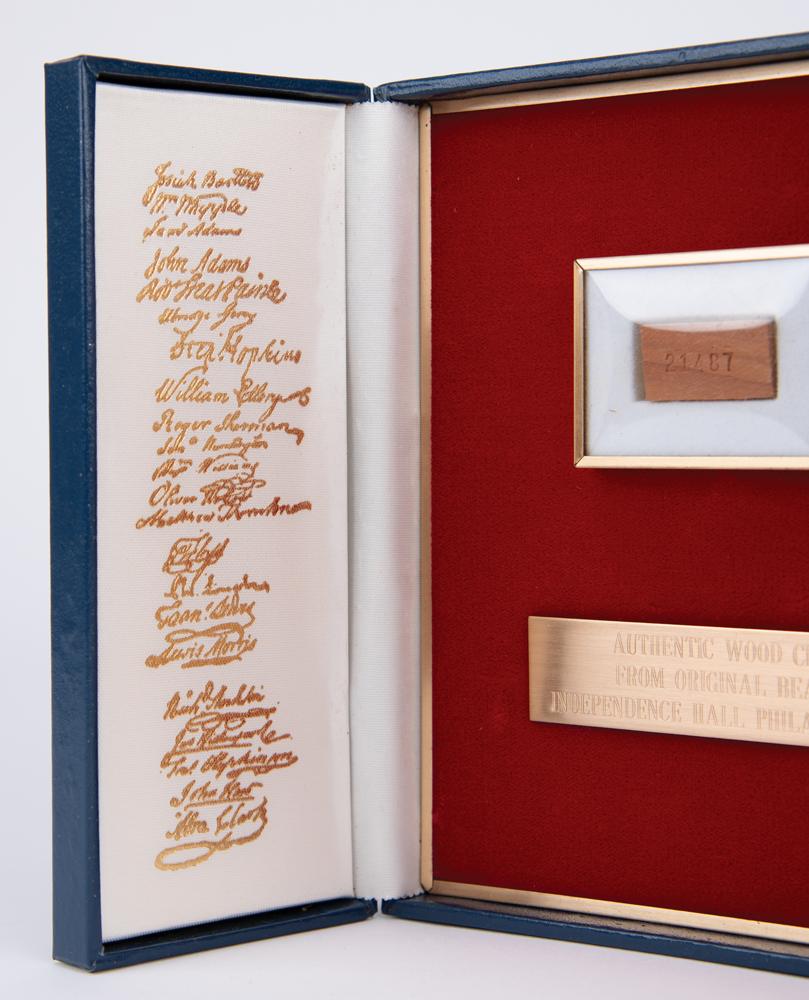 Josiah Bartlett
Wm Whipple
Saml Adams
John Adams
Robt Treat Paine
Elbridge Gerry
Step. Hopkins
William Ellery
Roger Sherman
Saml Huntington
Wm Williams
Oliver Wolcott
Matthew Thornton
Phil. Livingston
Frans. Lewis
Lewis Morris
Richd Stockton
Jno Witherspoon
Fras. Hopkinson
John Hart
Abra Clark
21487
AUTHENTIC WOOD
FROM ORIGINAL
INDEPENDENCE HALL